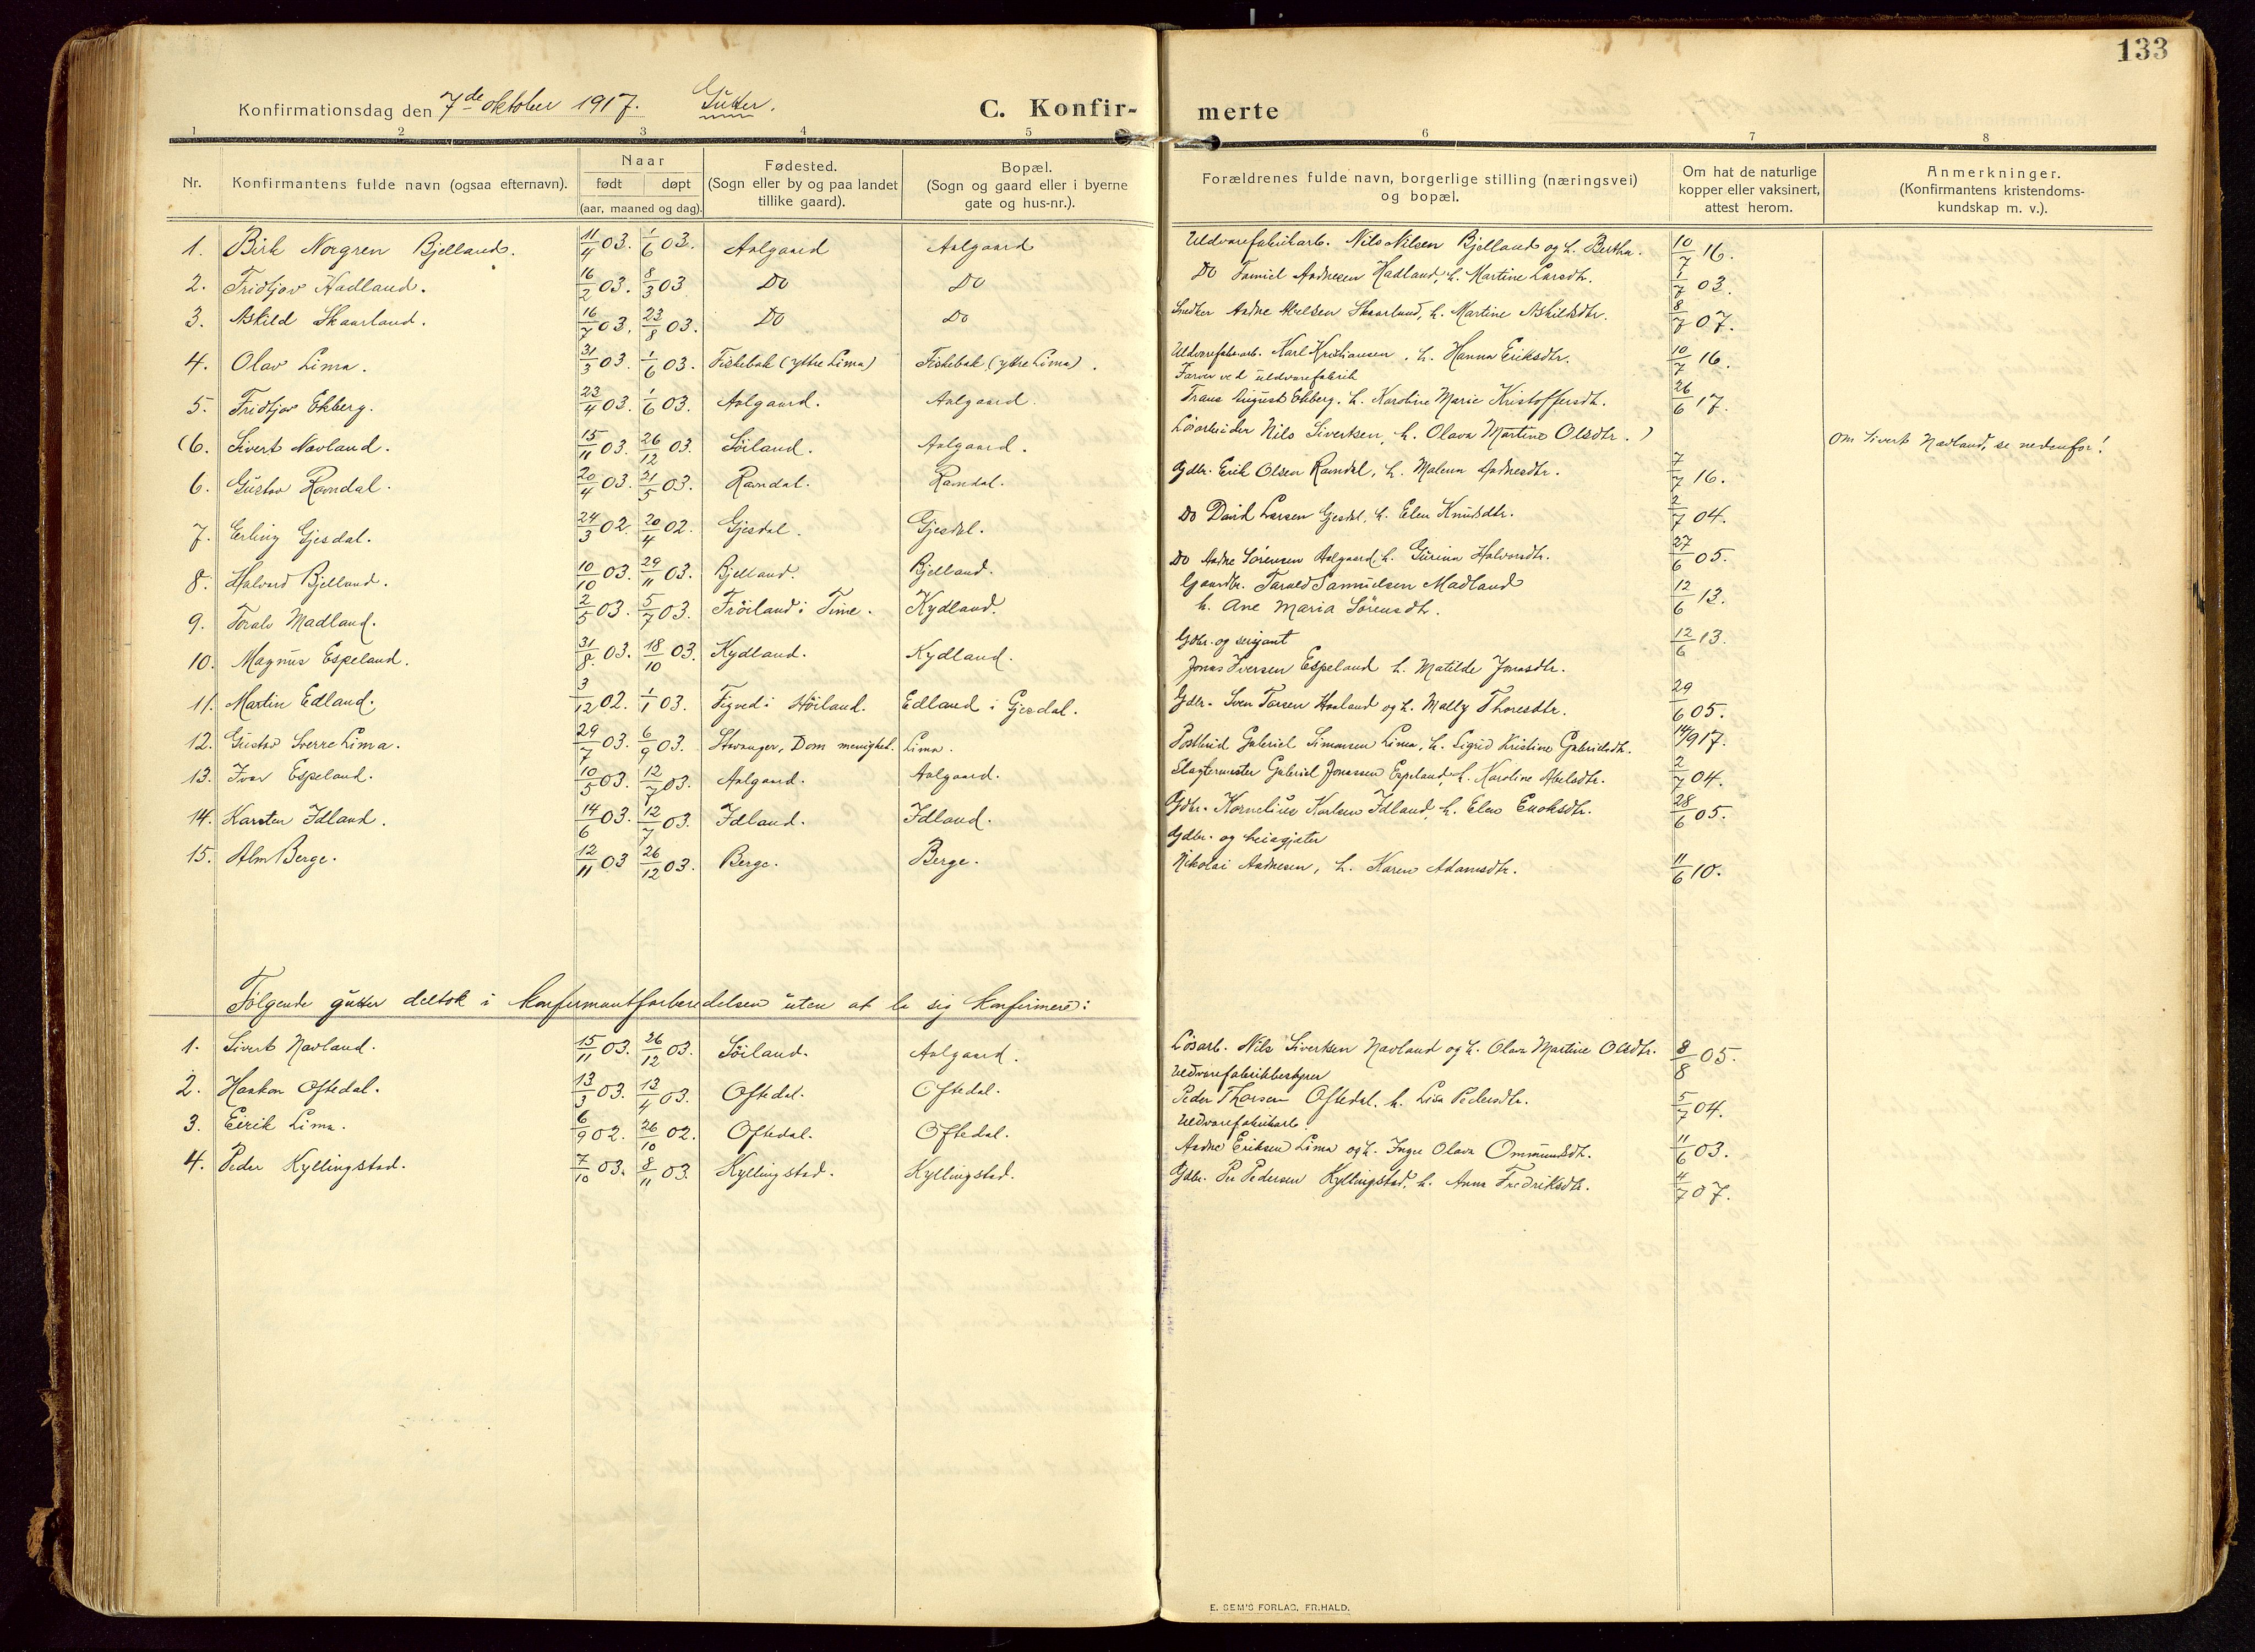 133
Konfirmationsdag den 7de oktober 1917. Gutter.
C. Konfir- merte
1 2 3 4 5 6 7 8
Nr.
Konfirmantens fulde navn (ogsaa efternavn).
Naar
født døpt
(aar, maaned og dag).
Fødested.
(Sogn eller by og paa landet
tillike gaard).
Bopæl.
(Sogn og gaard eller i byerne
gate og hus-nr.).
Forældrenes fulde navn, borgerlige stilling (næringsvei)
og bopæl.
Om hat de naturlige
kopper eller vaksinert,
attest herom.
Anmerkninger.
(Konfirmantens kristendoms-
kundskap m. v.).
1. Birk Norgren Bjelland. 11/4 03. 1/6 03. Aalgaard Aalgaard Uldvarefabrikarb. Nils Nilsen Bjelland og h. Bertha. 10/7 16.
2. Fridtjov Hadland. 16/2 03. 8/3 03 Do Do Do Andresen Hadland, h. Martine Larsdtr. 1/7 03.
3. Askild Skaarland. 16/7 03. 23/8 03. Do Do Snedker Andne Abelsen Skaarland, h. Martine Askildsdtr. 8/7 07.
4. Olav Lima. 31/3 03. 1/6 03. Fiskebæk (ytre Lima) Fiskebæk (ytre Lima). Uldvarefabrarb. Karl Kristiansen. h. Hanna Eriksdtr. 10/7 16.
Farver ved uldvarefabrik
5. Fridtjov Ekberg. 23/4 03. 1/6 03. Aalgaard. Aalgaard. Frans August Ekberg. h. Karoline Marie Kristoffersdtr. 26/6 17.
(6. Sivert Navland. 15/11 03. 26/12 03. Söiland. Aalgaard. Lösarbeider Nils Sivertsen, h. Olava Martine Olsdtr.) Om Sivert Navland, se nedenfor!
6. Gustav Ravndal. 20/4 03. 21/5 03. Ravndal. Ravndal. Gdbr. Erik Olsen Ravndal, h. Malena Andresdtr. 7/7 16.
7. Erling Gjesdal. 24/3 02. 20/4 02. Gjesdal. Gjesdal. Do David Larsen Gjesdal, h. Elen Knudsdtr. 2/7 04.
8. Halvard Bjelland. 10/10 03. 29/11 03. Bjelland. Bjelland. Do Andre Sörensen Aalgaard, h. Gurina Halvorsdtr. 27/6 05.
9. Toralv Madland. 2/5 03. 5/7 03. Fröiland i Time. Kydland. Gaardbr. Tarald Samuelsen Madland
h. Ane Maria Sörensdtr. 12/6 13.
10. Magnus Espeland. 31/8 03. 18/10 03. Kydland. Kydland. Gdbr. og sersjant
Jonas Iversen Espeland h. Matilde Jonasdtr. 12/6 13.
11. Martin Edland. 3/12 02. 1/1 03. Figved i Höiland. Edland i Gjesdal. Gdbr. Sven Torsen Haaland og h. Mally Thoresdtr. 29/6 05.
12. Gustav Sverre Lima. 29/7 03. 6/9 03. Stavanger, Dom menighet. Lima. Postbud Gabriel Simonsen Lima, h. Sigrid Kristine Gabrielsdtr. 14/9 17.
13. Ivar Espeland. 10/5 03. 12/7 03. Aalgaard. Aalgaard. Slagtermester Gabriel Jonassen Espeland, h. Karoline Abelsdtr. 2/7 04.
14. Karsten Idland. 14/6 03. 12/7 03. Idland. Idland. Gdbr. Kornelius Karlsen Idland, h. Elen Enoksdtr. 28/6 05.
15. Alm Berge. 12/11 03 26/12 03. Berge. Berge. Gdbr. og heiegjæter
Nikolai Andresen, h. Karen Adamsdtr. 11/6 10.
Følgende gutter deltok i konfirmantforberedelsen uten at la sig konfirmere:
1. Sivert Navland. 15/11 03. 26/12 03. Söiland. Aalgaard. Lösarb. Nils Sivertsen Navland og h. Olava Martine Olsdtr. 8/8 05.
2. Haakon Oftedal. 13/3 03. 13/4 03. Oftedal. Oftedal. Uldvarefabrikbestyrer
Peder Thorsen Oftedal. h. Lisa Pedersdtr. 5/7 04.
3. Eirik Lima. 6/9 02. 26/10 02. Oftedal. Oftedal. Uldvarefabrikarb.
Andre Eriksen Lima og h. Inger Olava Ommundsdtr. 11/6 03.
4. Peder Kyllingstad. 7/10 03. 8/11 03. Kyllingstad. Kyllingstad. Gdbr. Per Pedersen Kyllingstad, h. Anna Fredriksdtr. 4/7 07.
E. SEM'S FORLAG, FR.HALD.